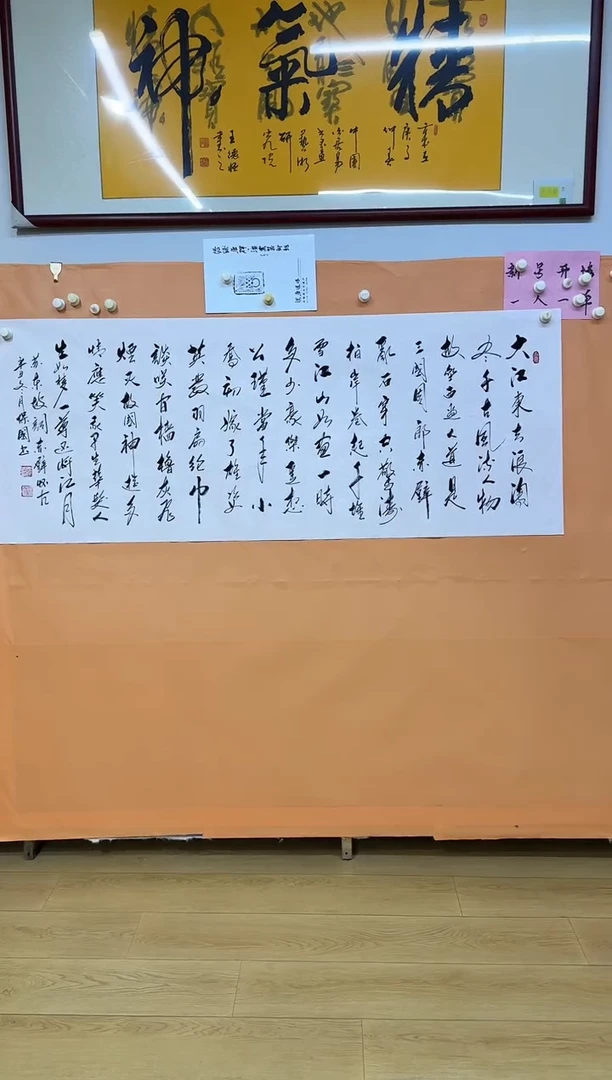 精氣神
中國
藝術
研
究院
新号开播
大江東去浪淘
尽千古風流人物
故壘西邊人道是
三國周郎赤壁
亂石穿空驚濤
拍岸卷起千堆
雪江山如畫一時
多少豪傑遥想
公瑾當年小
喬初嫁了雄姿
英發羽扇綸巾
談咲間檣櫓灰飛
煙灭故國神遊多
情應笑我早生華髮人
生如夢一尊還酹江月
蘇東坡詞赤壁懷古